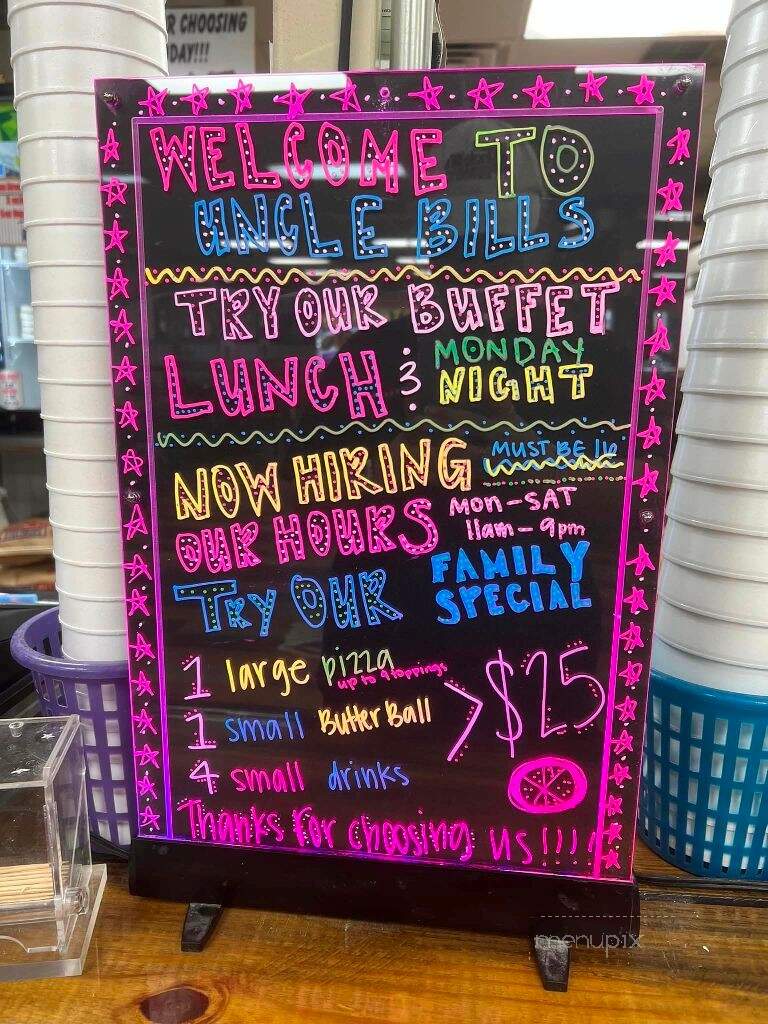 R CHOOSING
DAY!!!
WELCOME TO
UNCLE BILLS
TRY OUR BUFFET
LUNCH & MONDAY
NIGHT
NOW HIRING MUST BE 16
OUR HOURS MON-SAT
11am-9pm
TRY OUR FAMILY
SPECIAL
1 large pizza
up to 9 toppings
1 small Butter Ball
4 small drinks
> $25
Thanks For choosing us!!!!
menupix